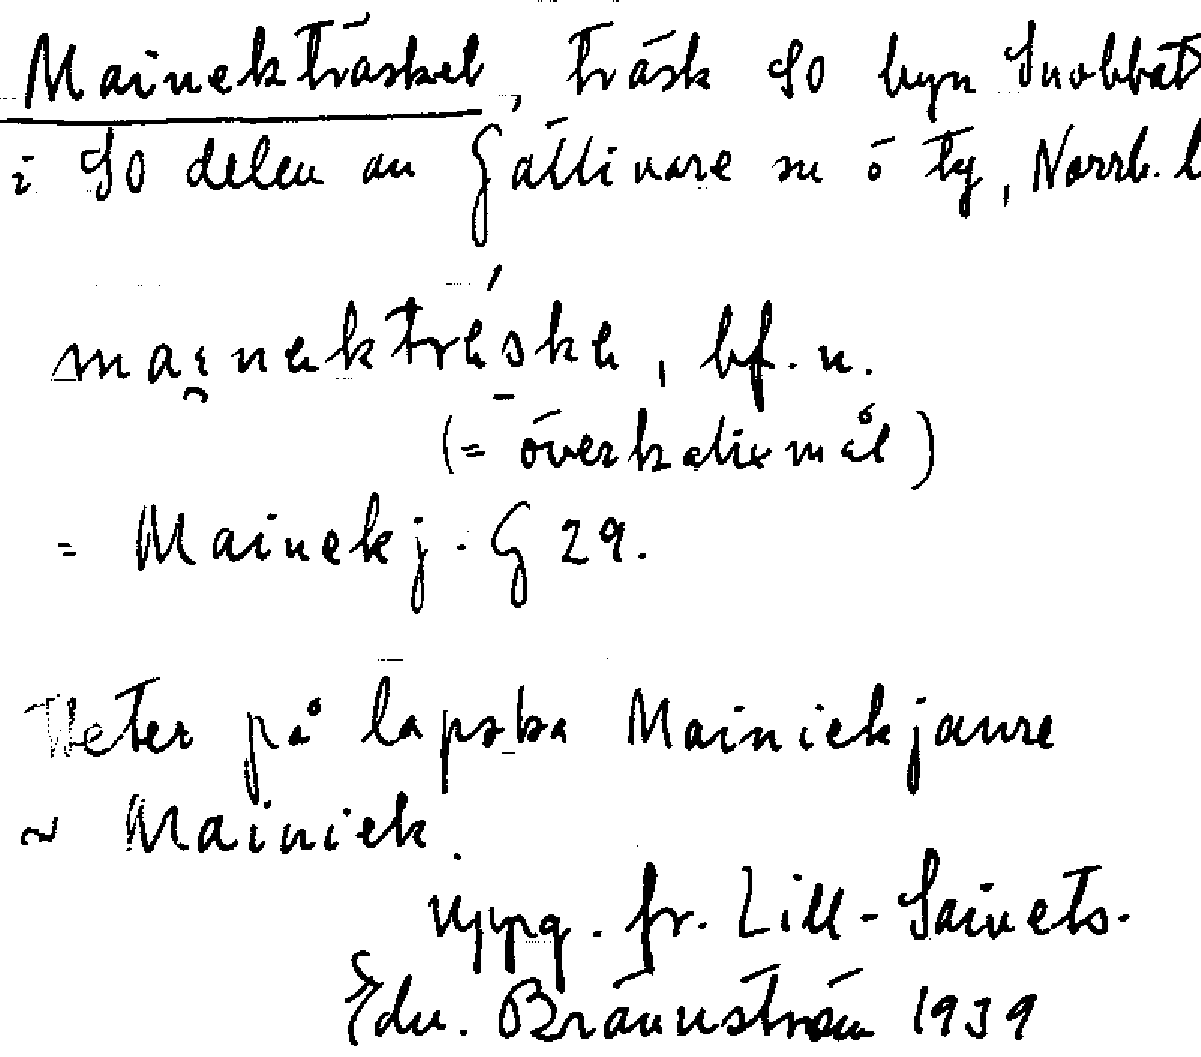 Mainekträsket, träsk SO byn Snobbat
i SO delen av Gällivare sn ö tg, Norrb. l
(= överkalixmål)
bf. n.
= Mainekj. G 29.
Heter på lapska Mainiekjaure
~ Mainiek.
uppg. fr. Lill-Saivets.
Edv. Brännström 1939